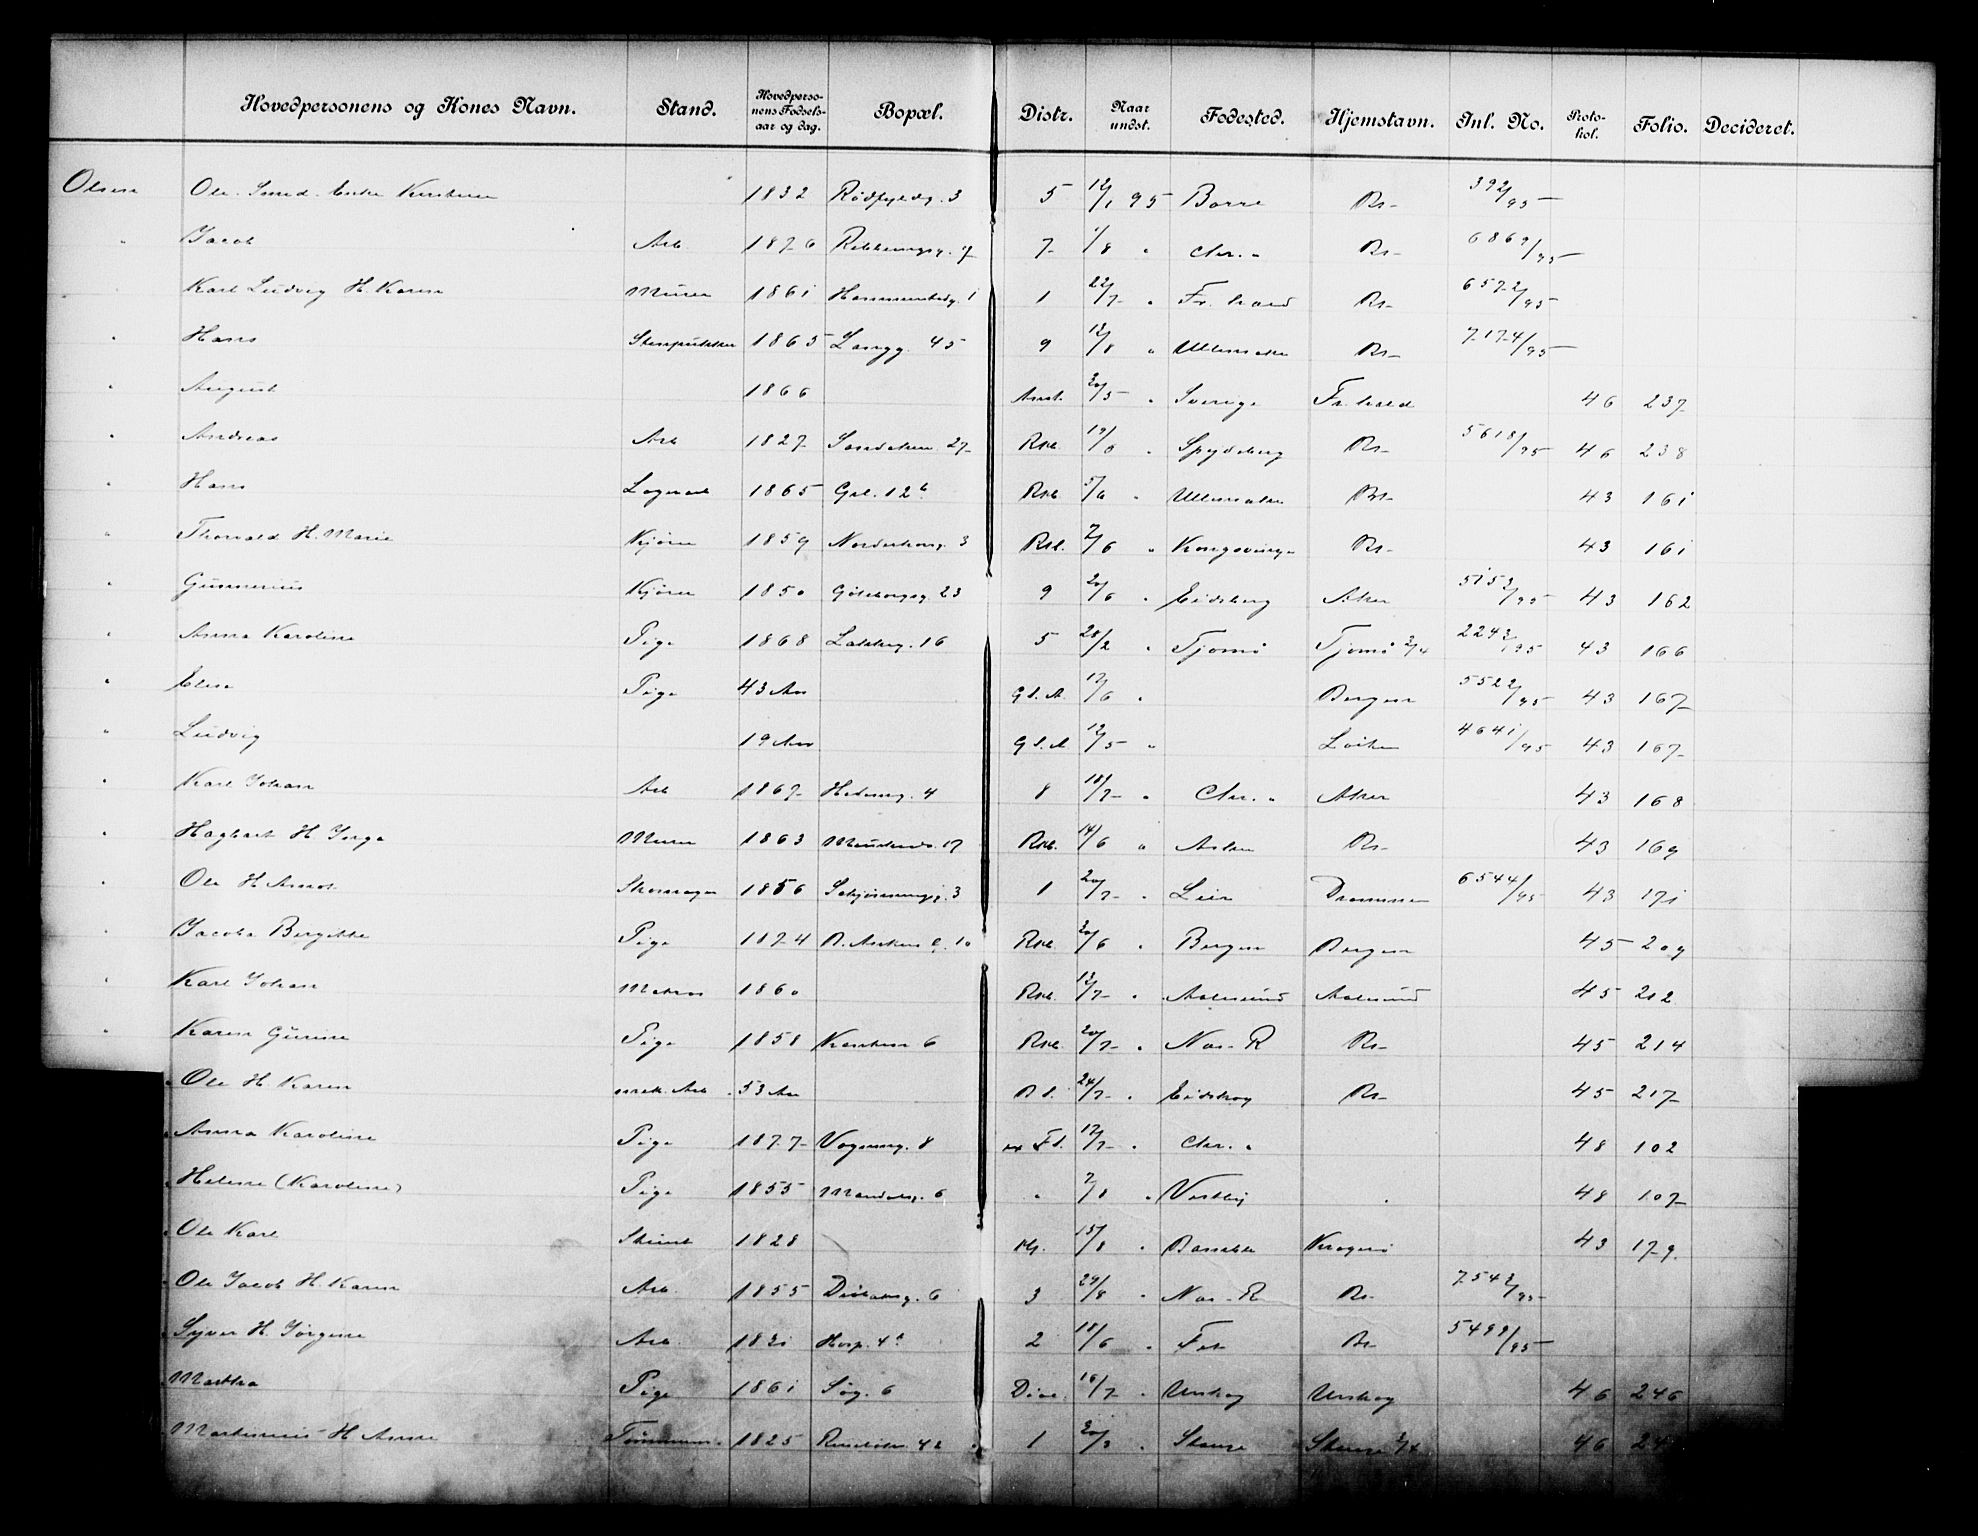 Hovedpersonens og Kones Navn. Stand. Hovedperso-nens Fødsels-aar og dag. Bopæl. Distr. Naar undst. Fødested. Hjemstavn. Inl. No. Proto-kol. Folio. Decideret.
Olsen Ole Smed Enke Kirstine 1832 Rødfyldg. 3 5 12/1 95 Borre Rs- 392/95
" Jacob Arb. 1876 7 1/8 " Chr.a Rs- 6869/95
Karl Ludvig H. Karen Murer 1861 1 22/7 " Fr.hald Rs- 6572/95
" Hans Stenpukker 1865 Langg. 45 9 12/8 " Ullensaker Rs- 7174/95
" August 1866 Anst. 20/5 " Sverige Fr.hald 46 237
" Andreas Arb 1827 Sandaker 27 Rkl. " Spydeberg Rs- 5618/95 46 238
" Hans Lagerarb 1865 Gsl. 12b Rkl. 5/6 " Ullensaker Rs- 43 161
" Thorvald H. Marie Kjører 1859 3 Rkl. 7/6 " Kongsvinger Rs- 43 161
" Gunnerius Kjører 1850 Göteborgg. 23 9 20/6 " Eidsberg Aker 5153/95 43 162
" Anna Karoline Pige 1868 Lakkeg. 16 5 28/2 " Tjømø Tjømø 2/4 2243/95 43 166
" Elen Pige 43 Aar G.S.A. 17/6 " Bergen 5522/95 43 167
" Ludvig 19 Aar G.S.A. 12/5 " Løiten 4641/95 43 167
" Karl Johan Arb 1867 Hedemg. 4 8 18/7 " Chr.a Aker 43 168
" Hagbart H. Inga Murer 1863 17 Rkl. 14/6 " Asker Rs- 43 169
" Ole H. Anna Skomager 1856 Schjønningg. 3 1 20/7 " Lier Drammen 6544/95 43 171
" Jacoba Bergitte Pige 1874 10 Rkl. 20/6 " Bergen Bergen 45 209
" Karl Johan Matros 1860 Rkl. 12/7 " Aalesund Aalesund 45 212
" Karen Gurine Pige 1858 6 Rkl. 20/7 " Nas. R Rs- 45 214
" Ole H. Karen mek. Arb. 53 Aar 24/7 " Eidskog Rs- 45 217
" Anna Karoline Pige 1877 Vogmng. 8 12/7 " Chr.a 48 102
" Helene (Karoline) Pige 1855 Mandalsg. 6 " 7/8 " Vestby " 48 107
" Ole Karl 1828 15/8 " Bamble Kragerø 43 179
" Ole Jacob H. Karen Arb. 1855 6 3 29/8 " Nas. R Rs- 7543/95
" Syver H. Jørgine Arb. 1831 Hosp. 4b 2 18/6 " Fet Rs- 5499/95
" Martha Pige 1861 Søg. 6 16/7 " Urskog Urskog 46 246
Martinius H. Anne Tømmerm. 1825 1 20/3 " Skauge Skauge 2/4 46